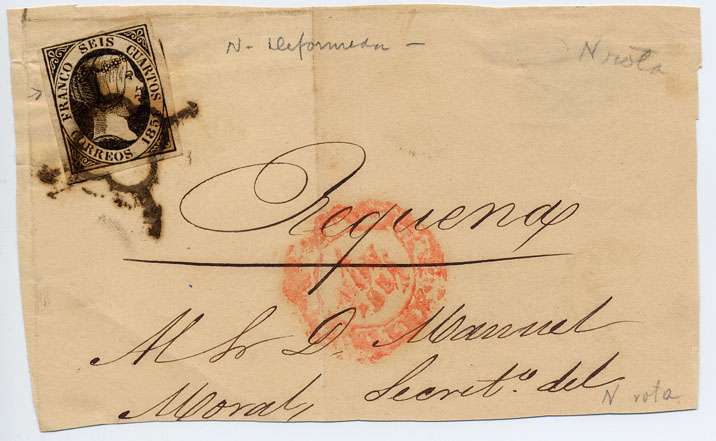 FRANCO SEIS CUARTOS
CORREOS 1851
N- Deformeda -
N rota
Requena
Al Sr D. Manuel
Moral, Secret.º del
N rota